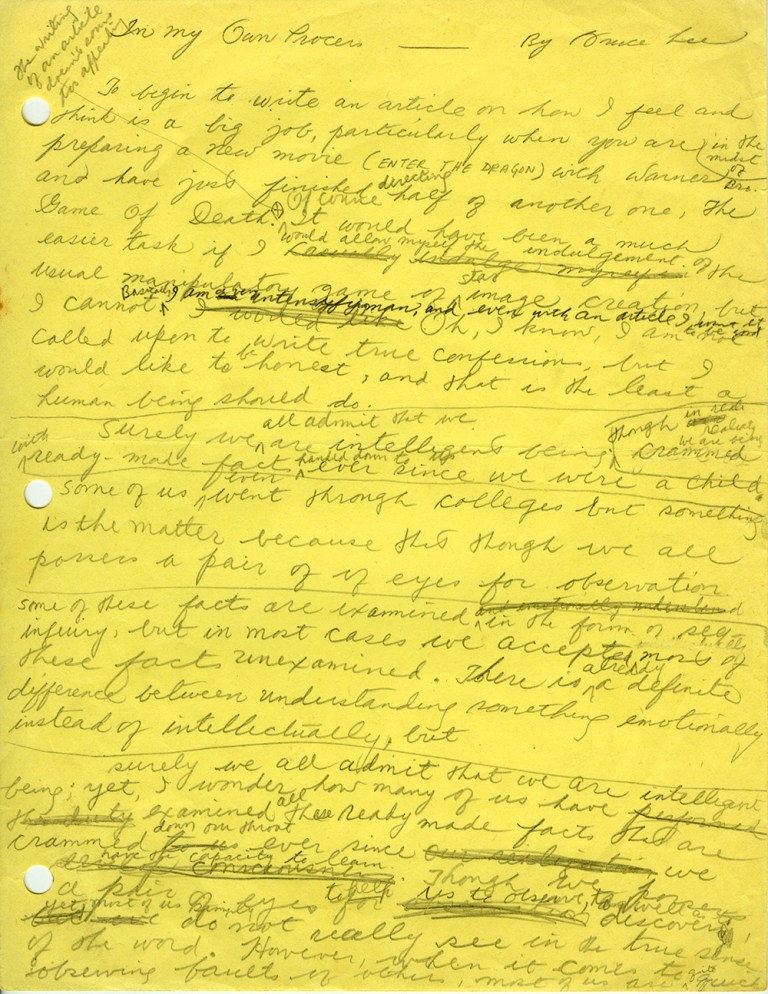 The writing
of an article
doesn't
In My Own Process — By Bruce Lee
To begin to write an article on how I feel and
think is a big job, particularly when you are in the midst of
preparing a new movie (ENTER THE DRAGON) with Warner Bro.
and have just finished directing half of another one, The
Game Of Death. Of course It would have been a much
easier task if I would allow myself the indulgement of the
usual manipulatory game of star image creation, but
I cannot. Basically, I am intensity of human, and even with an article I want it
I would like Oh, I know, I am
called upon to write true confession, but I
would like to be honest, and that is the least a
human being should do.
Surely we all admit that we are intelligent being; though in reality we are being crammed
with ready-made facts handed down to us ever since we were a child.
Some of us even went through colleges but something
is the matter because that though we all
possess a pair of eyes for observation
some of these facts are examined and emotionally understand in the form of self
inquiry, but in most cases we accepted most of
these facts unexamined. There is already a definite
difference between understanding something emotionally
instead of intellectually, but
surely we all admit that we are intelligent
being; yet, I wonder how many of us have performed
the duty examined all these ready made facts that are
crammed down our throat ever since we
have the capacity to learn consciousness. Though we possess
a pair of eyes to help us to observe, to discover,
yet most of us simply do not really see in the true sense
of the word. However, when it comes to
observing faults of others, most of us are quite quick